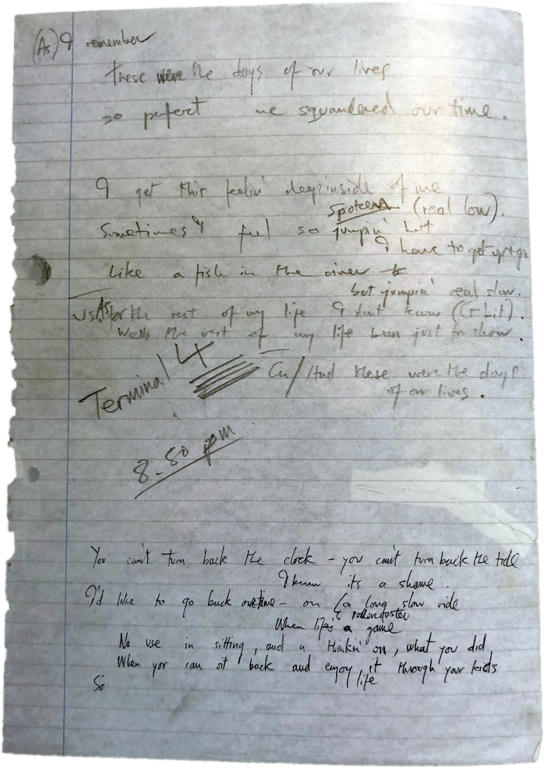 (As) I remember
these were the days of our lives
so perfect we squandered our time.
I get this feelin' deep inside of me
spoken (real low).
Sometimes I feel so jumpin' but
I have to get up & go
Like a fish in the
but jumpin' real slow.
As for the rest of my life I don't know
the rest of my life been just a show.
Terminal 4
Cu/ And these were the days
of our lives.
8.50 pm
You can't turn back the clock – you can't turn back the tide
I know it's a shame.
I'd like to go back – on a long slow ride
rollercoaster
When life's a game
No use in sitting, and a thinkin' on, what you did
When you can sit back and enjoy it through your kids
life
So